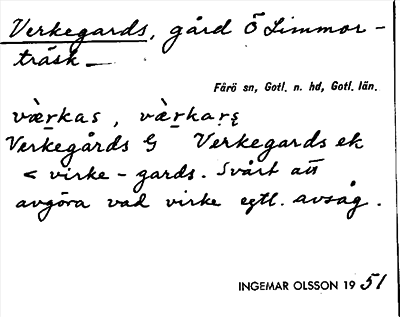 Verkegards, gård Ö Limmor-
träsk —
Fårö sn, Gotl. n. hd, Gotl. län.
vær̠kas, vær̠kar̨s
Verkegårds G Verkegards ek
< virke-gards. Svårt att
avgöra vad virke egtl. avsåg.
INGEMAR OLSSON 1951